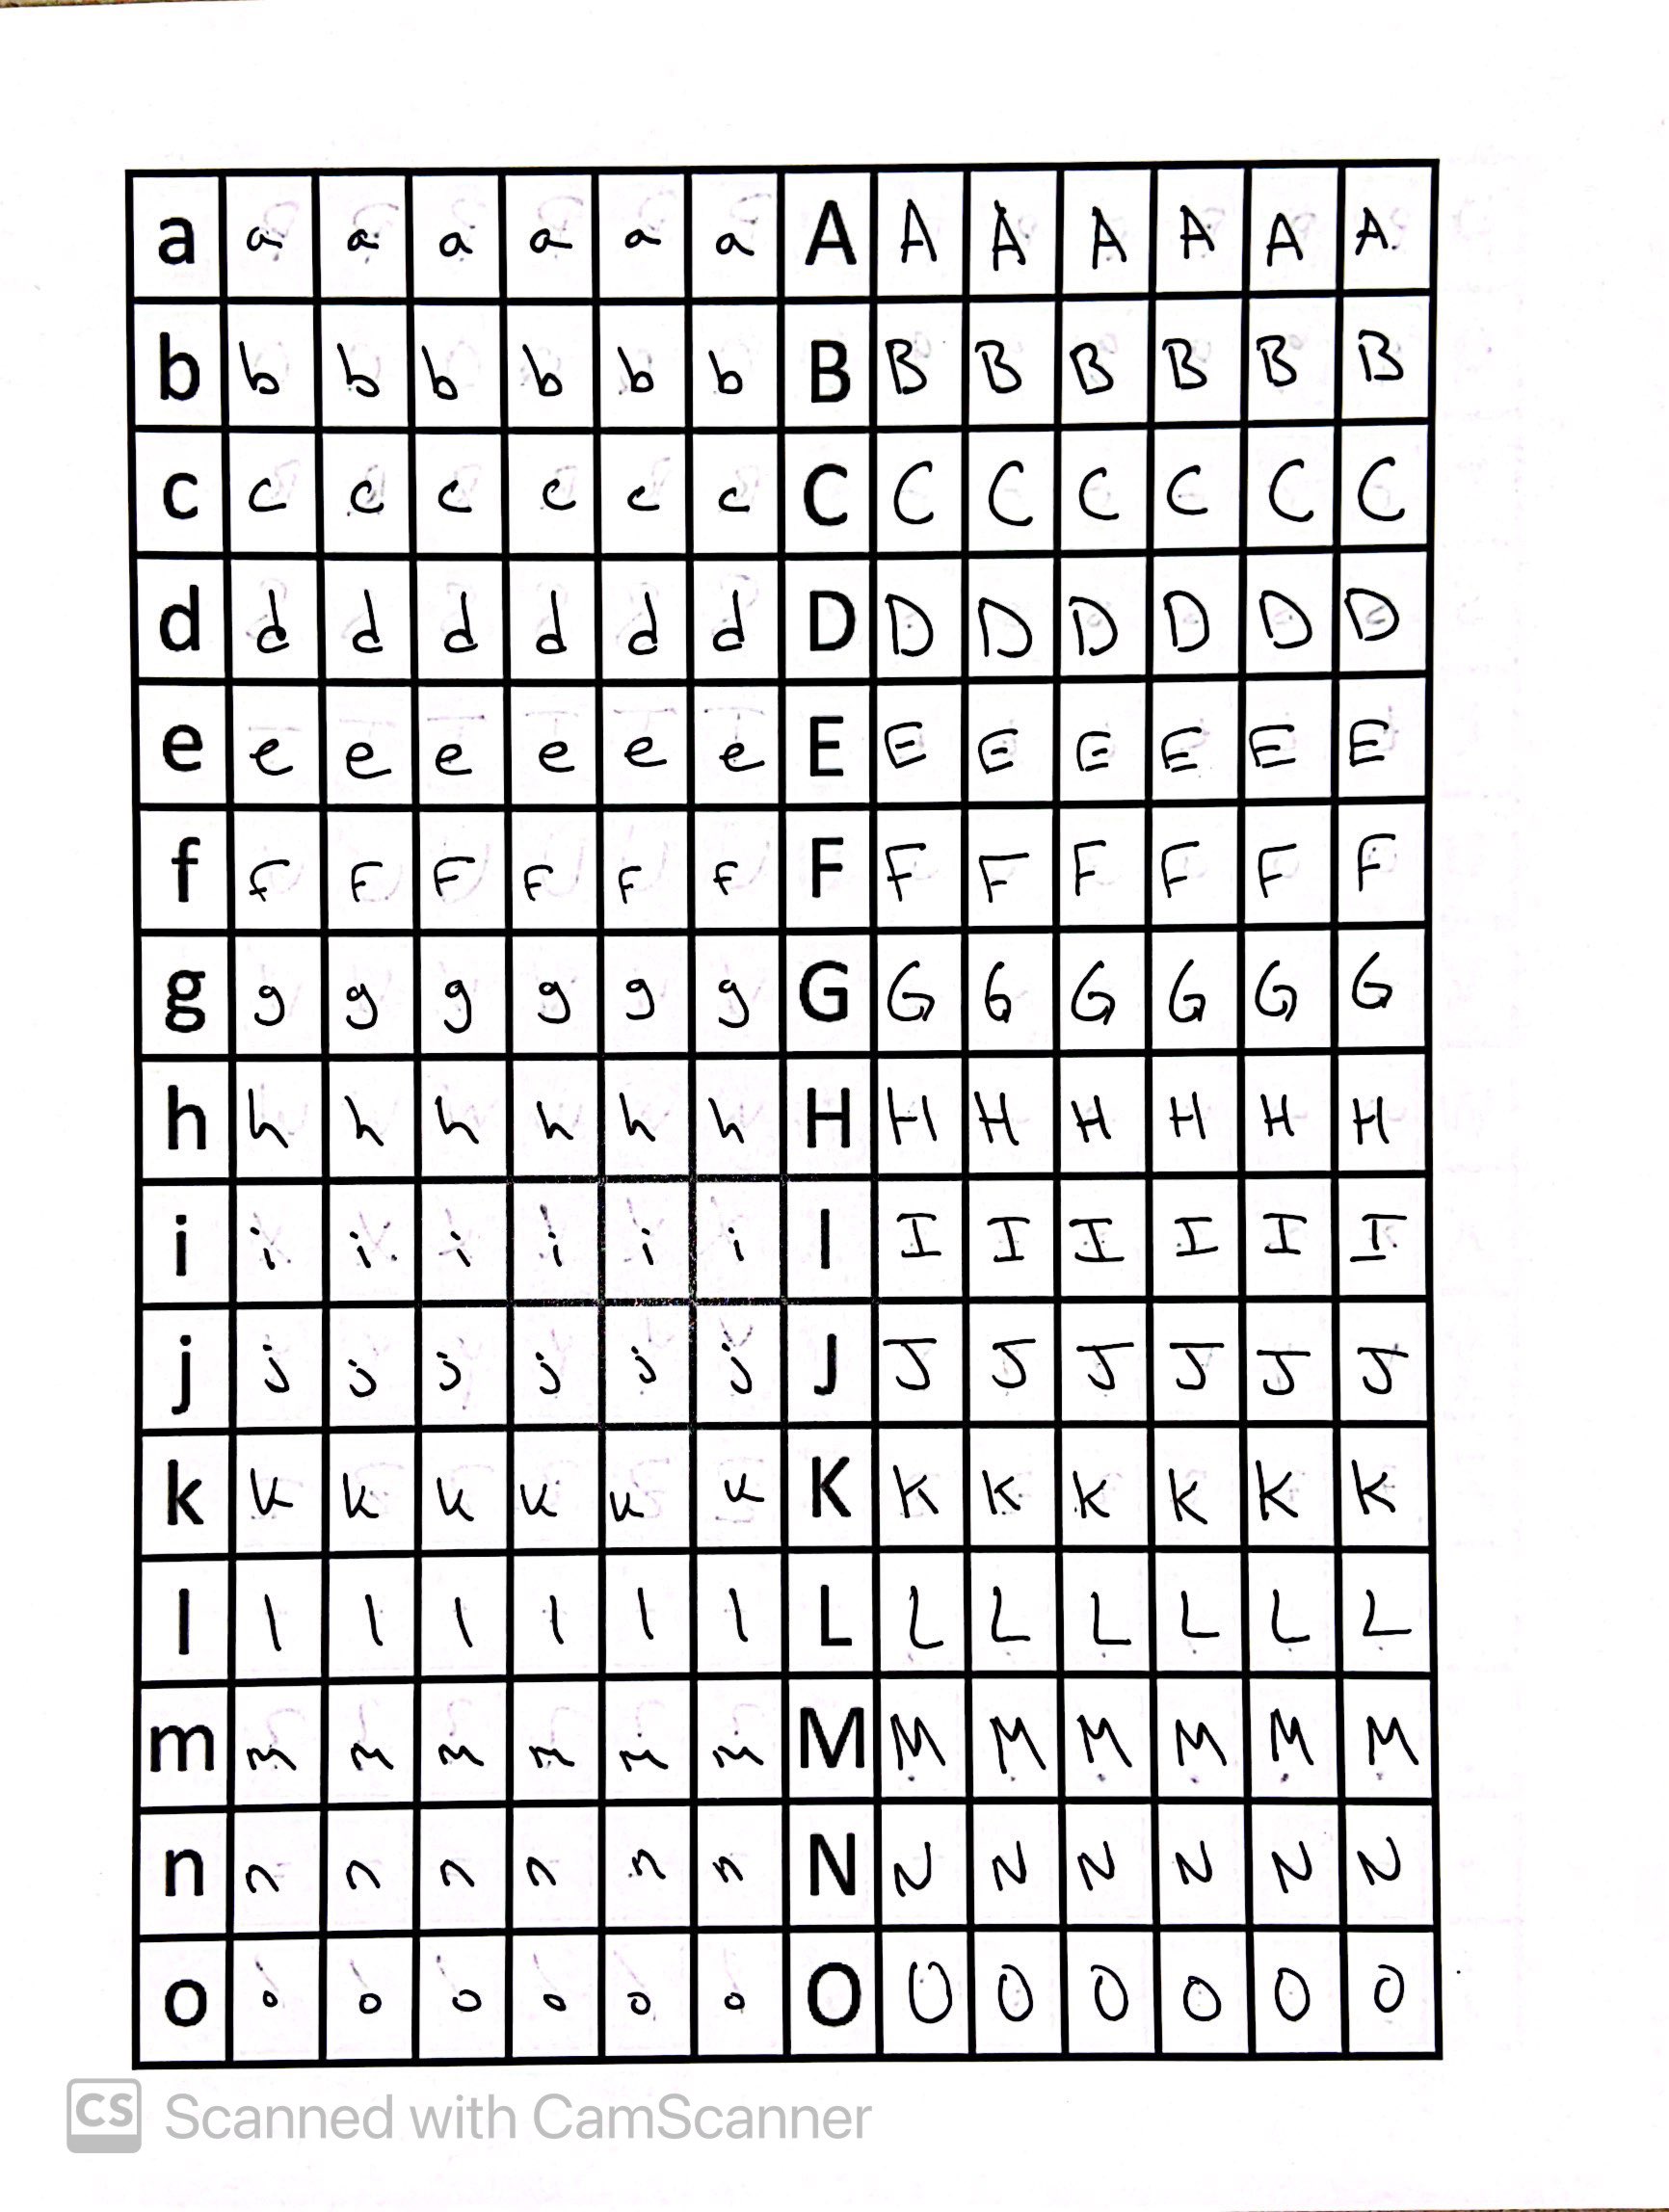 a a a a a a a A A A A A A A
b b b b b b b B B B B B B B
c c c c c c c C C C C C C C
d d d d d d d D D D D D D D
e e e e e e e E E E E E E E
f f F F F F f F F F F F F F
g g g g g g g G G G G G G G
h h h h h h h H H H H H H H
i i i i i i i I I I I I I I
j j j j j j j J J J J J J J
k k k k k k k K K K K K K K
l l l l l l l L L L L L L L
m m m m m m m M M M M M M M
n n n n n n n N N N N N N N
o o o o o o o O O O O O O O
CS Scanned with CamScanner